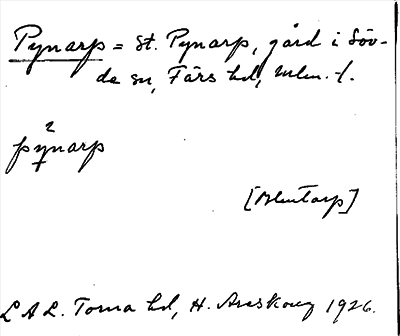 Pynarp = St. Pynarp, gård i Söv-
de sn, Färs hd, Mlm. l.
2
pynarp
[Blentarp]
LAL. Torna hd, H. Areskoug 1926.